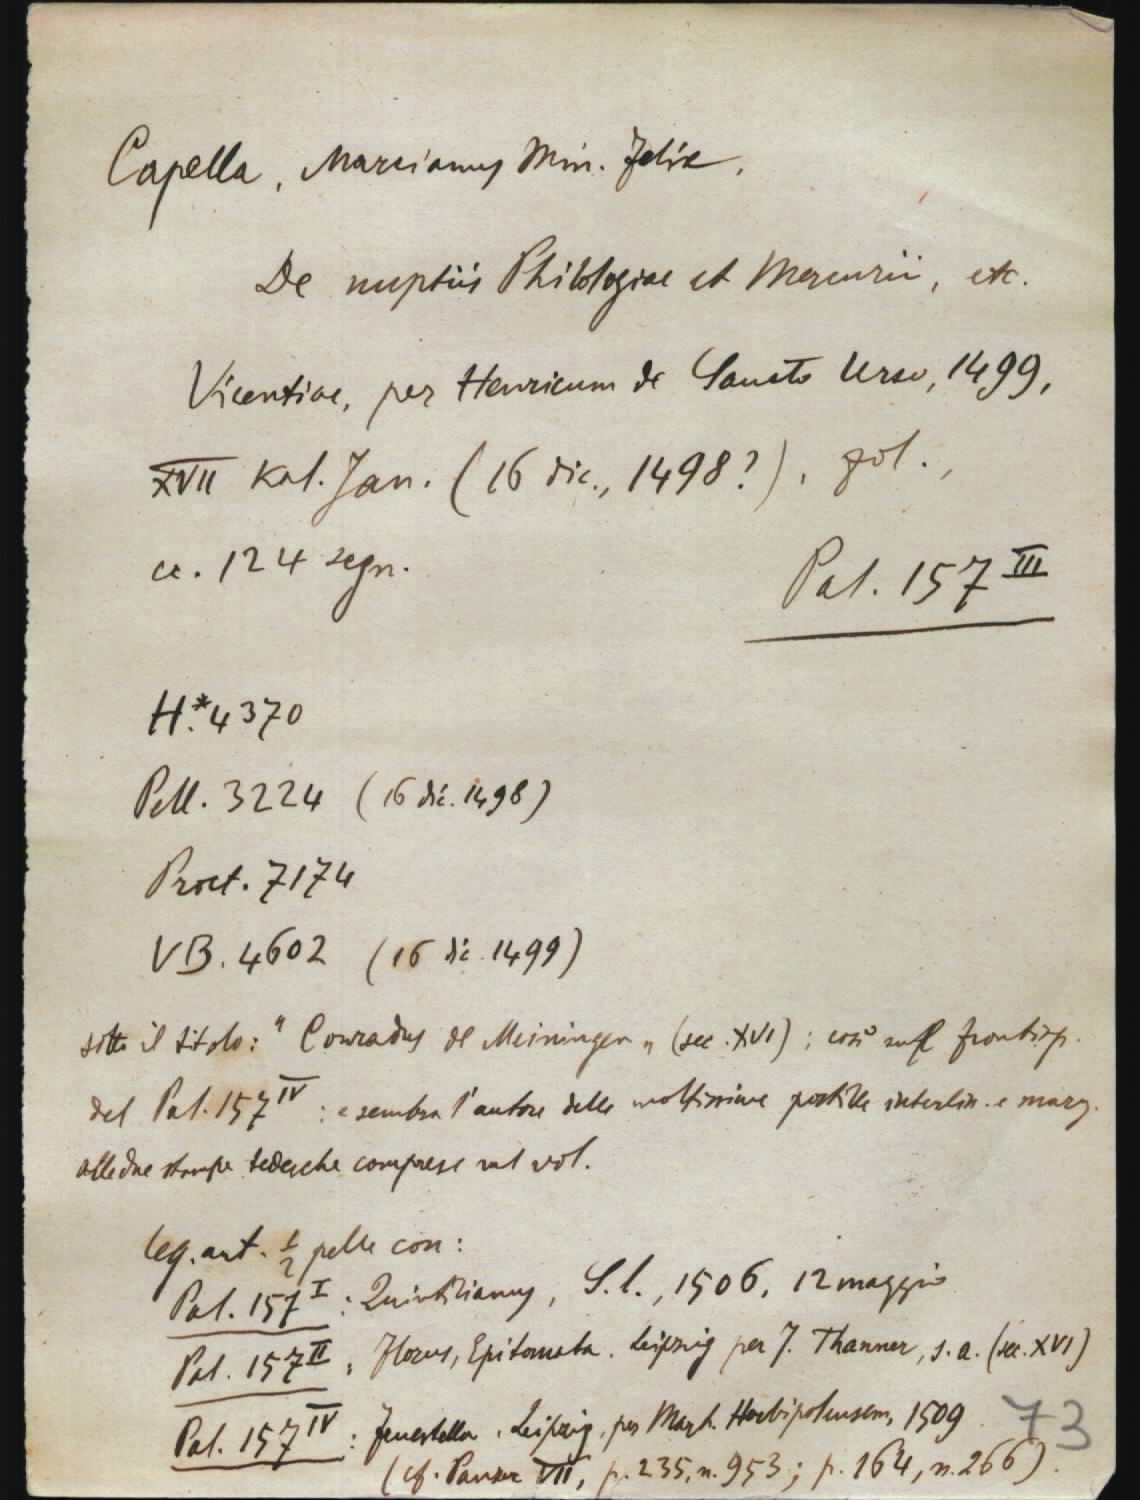 Capella, Marcianus Min. Felix,
De nuptiis Philologiae et Mercurii, etc.
Vicentiae, per Henricum de Sancto Urso, 1499,
XVII Kal. Jan. (16 dic., 1498?). fol.,
cc. 124 segn.
Pal. 157 III
H.*4370
Pell. 3224 (16 dic. 1498)
Proct. 7174
VB. 4602 (16 dic. 1499)
sotto il titolo: "Conradus de Meiningen" (sec. XVI); così sul frontisp.
del Pal. 157 IV: e sembra l'autore delle moltissime postille interlin. e marg.
alle due stampe tedesche comprese nel vol.
leg. ant. 1/2 pelle con:
Pal. 157 I: Quintilianus, S.l., 1506, 12 maggio
Pal. 157 II: Florus, Epitomata. Leipzig per J. Thanner, s.a. (sec. XVI)
Pal. 157 IV: Fenestella. Leipzig, per Mart. Herbipolensem, 1509
(cf. Panzer VII, p. 235, n. 953; p. 164, n. 266).
73